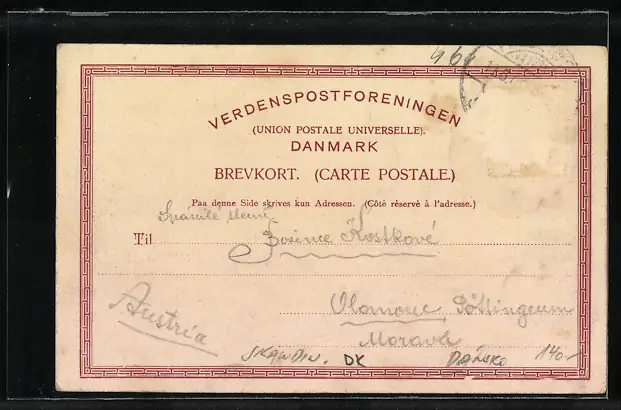 461
VERDENSPOSTFORENINGEN
(UNION POSTALE UNIVERSELLE).
DANMARK
BREVKORT. (CARTE POSTALE.)
Paa denne Side skrives kun Adressen. (Côté réservé à l'adresse.)
Til
Kostkové
Olomouc
Austria
Morava
SKANDIN. DK DÁNSKO 140.-